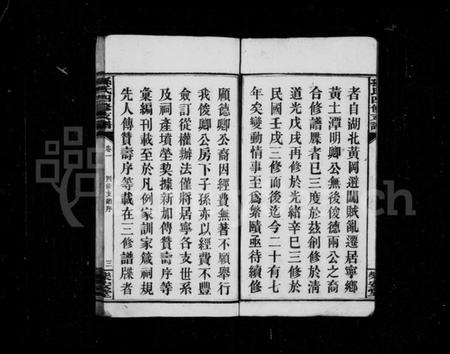 孫氏四修支譜
者自湖北黃岡遊闖賊亂遷居寧鄉
黃土潭明卿公無後俊德兩公之裔
合修譜牒者已三度於茲創修於淸
道光戊戌再修於光緒辛巳三修於
民國壬戌三修而後迄今二十有七
年矣變動情事至為繁賾亟待續修
顧德卿公裔因經費無著不願舉行
我俊卿公房下子孫亦以經費不豐
僉訂從權辦法僅將居寧各支世系
及祠產墳塋契據新加傳贊壽序等
彙編刊載至於凡例家訓家箴祠規
先人傳贊壽序等載在三修譜牒者
孫氏四修支譜
卷一
三
樂安堂